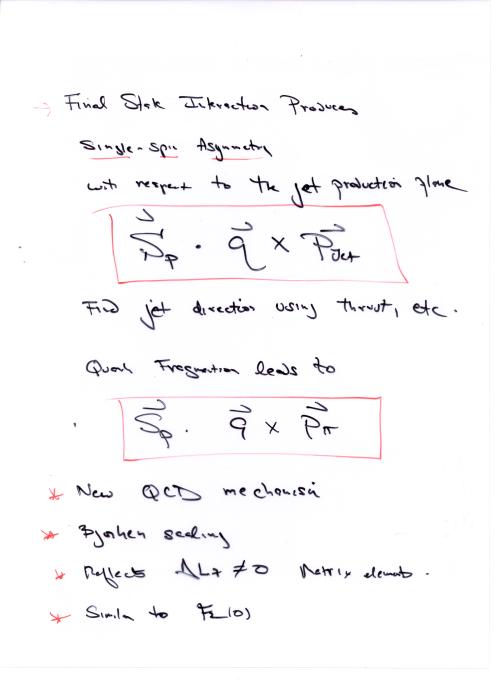 → Final State Interaction Produces
Single-Spin Asymmetry
with respect to the jet production plane
S⃗p · q⃗ × P⃗Jet
Find jet direction using thrust, etc.
Quark Fragmentation leads to
S⃗p · q⃗ × P⃗π
* New QCD mechanism
* Bjorken scaling
* Reflects ΔLz ≠ 0 Matrix elements.
* Similar to F2(0)